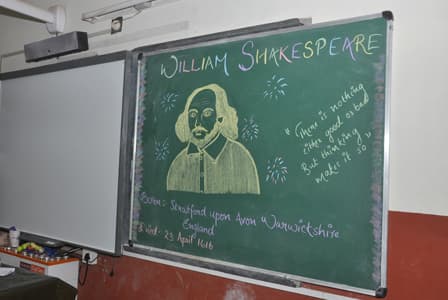 WILLIAM SHAKESPEARE
"There is nothing
either good or bad
But thinking
makes it so"
Born:- Stratford upon Avon Warwickshire
England
Died:- 23 April 1616